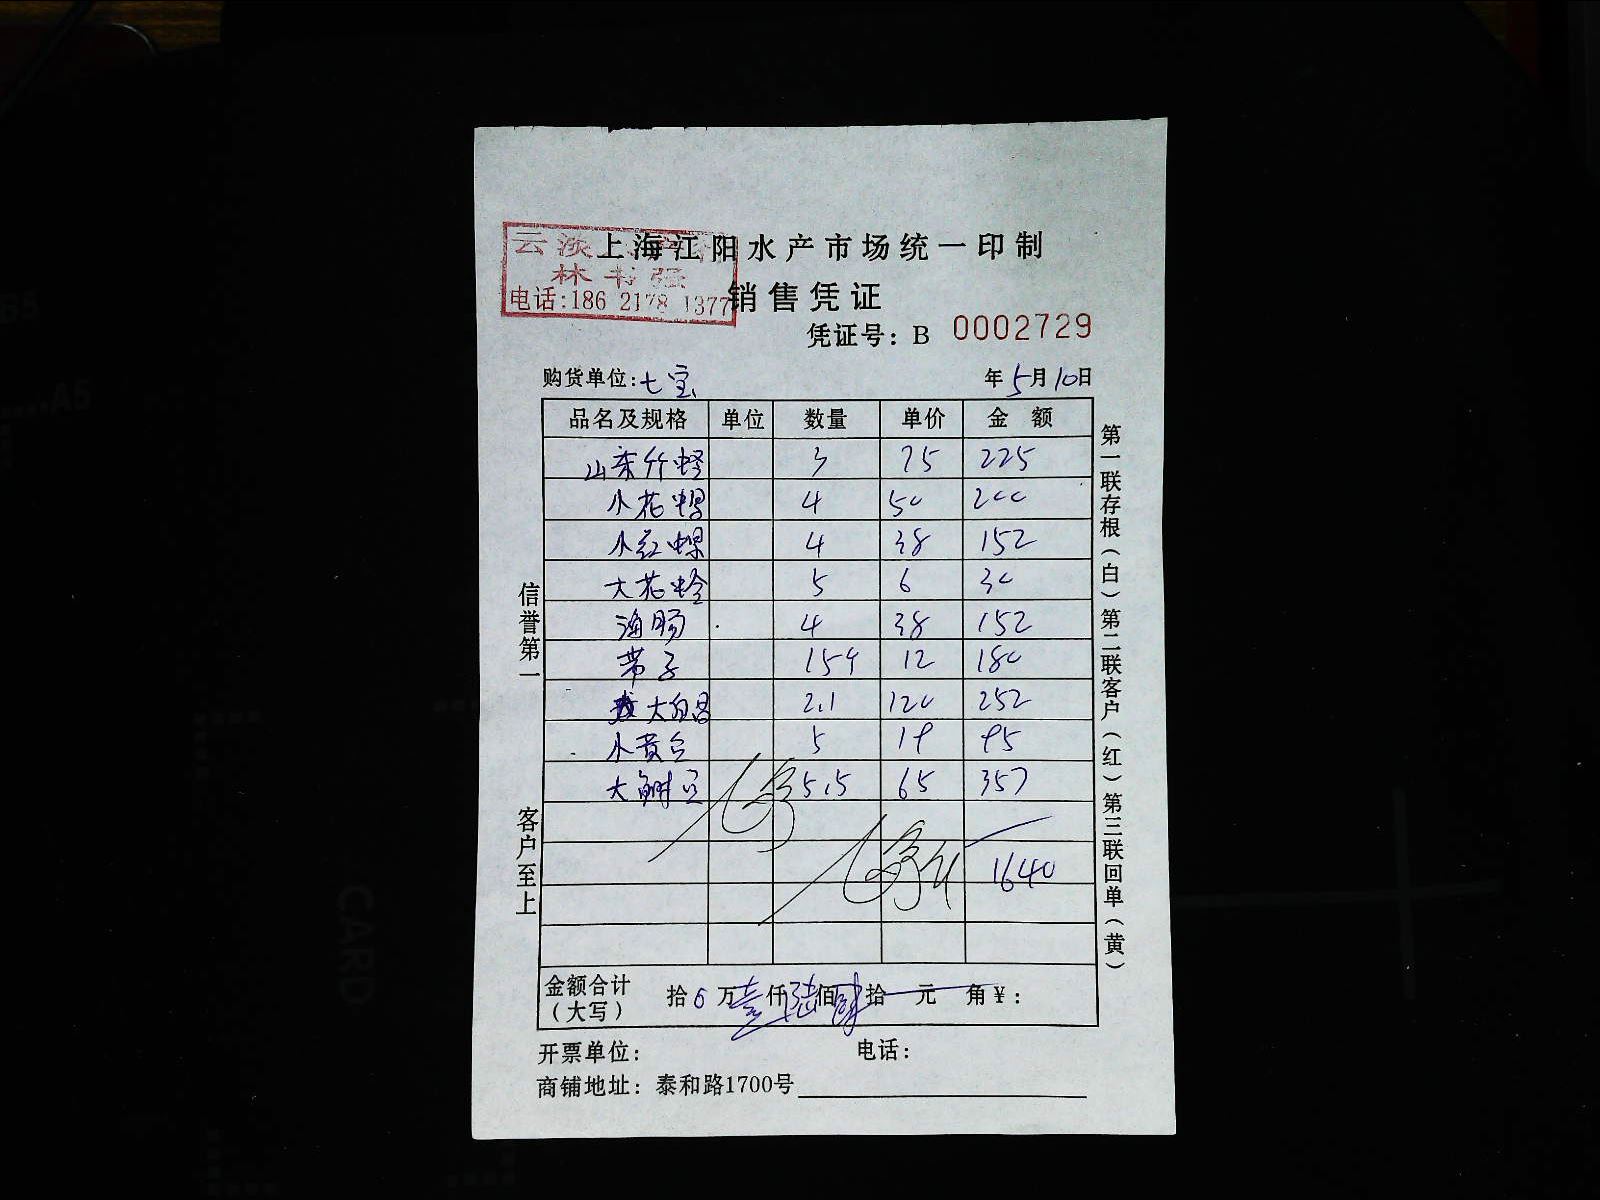 上海江阳水产市场统一印制
云淡
林书强
电话:186 2178 1377
销售凭证
凭证号: B 0002729
购货单位:七宝 年5月10日
品名及规格 单位 数量 单价 金 额
山东竹蛏 3 75 225
小花螺 4 50 200
小红螺 4 38 152
大花蛤 5 6 30
海肠 4 38 152
带子 15个 12 180
大白昌 2.1 120 252
小黄 5 19 95
大 5.5 65 357
1640
金额合计(大写) 拾 万壹仟陆佰肆拾 元 角¥:
开票单位: 电话:
商铺地址: 泰和路1700号
信誉第一
客户至上
第一联存根(白)第二联客户(红)第三联回单(黄)